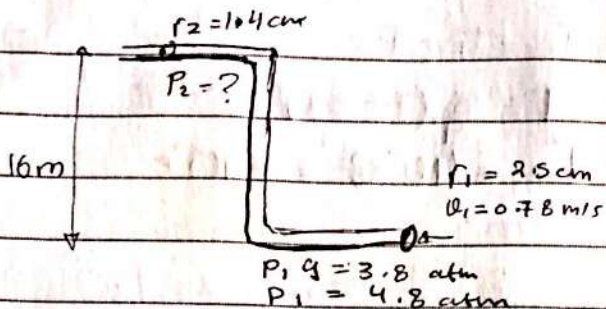 r2=1.4cm
P2=?
16m
r1 = 2.5cm
v1=0.78 m/s
P1 g = 3.8 atm
P1 = 4.8 atm